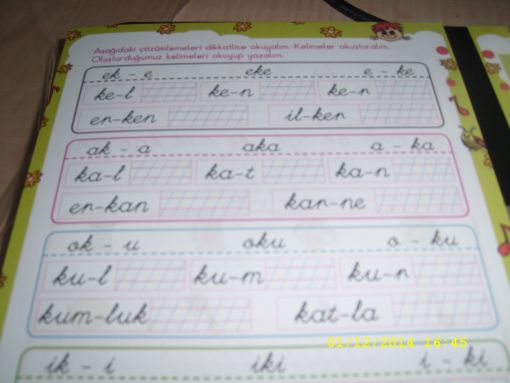 Aşağıdaki çözümlemeleri dikkatlice okuyalım. Kelimeler oluşturalım.
Oluşturduğumuz kelimeleri okuyup yazalım.
ek - e eke e - ke
ke-l ke-n ke-n
en-ken il-ken
ak - a aka a - ka
ka-l ka-t ka-n
en-kan kan-ne
ok - u oku o - ku
ku-l ku-m ku-n
kum-luk kat-la
01/12/2014 16:45
ik - i iki i - ki